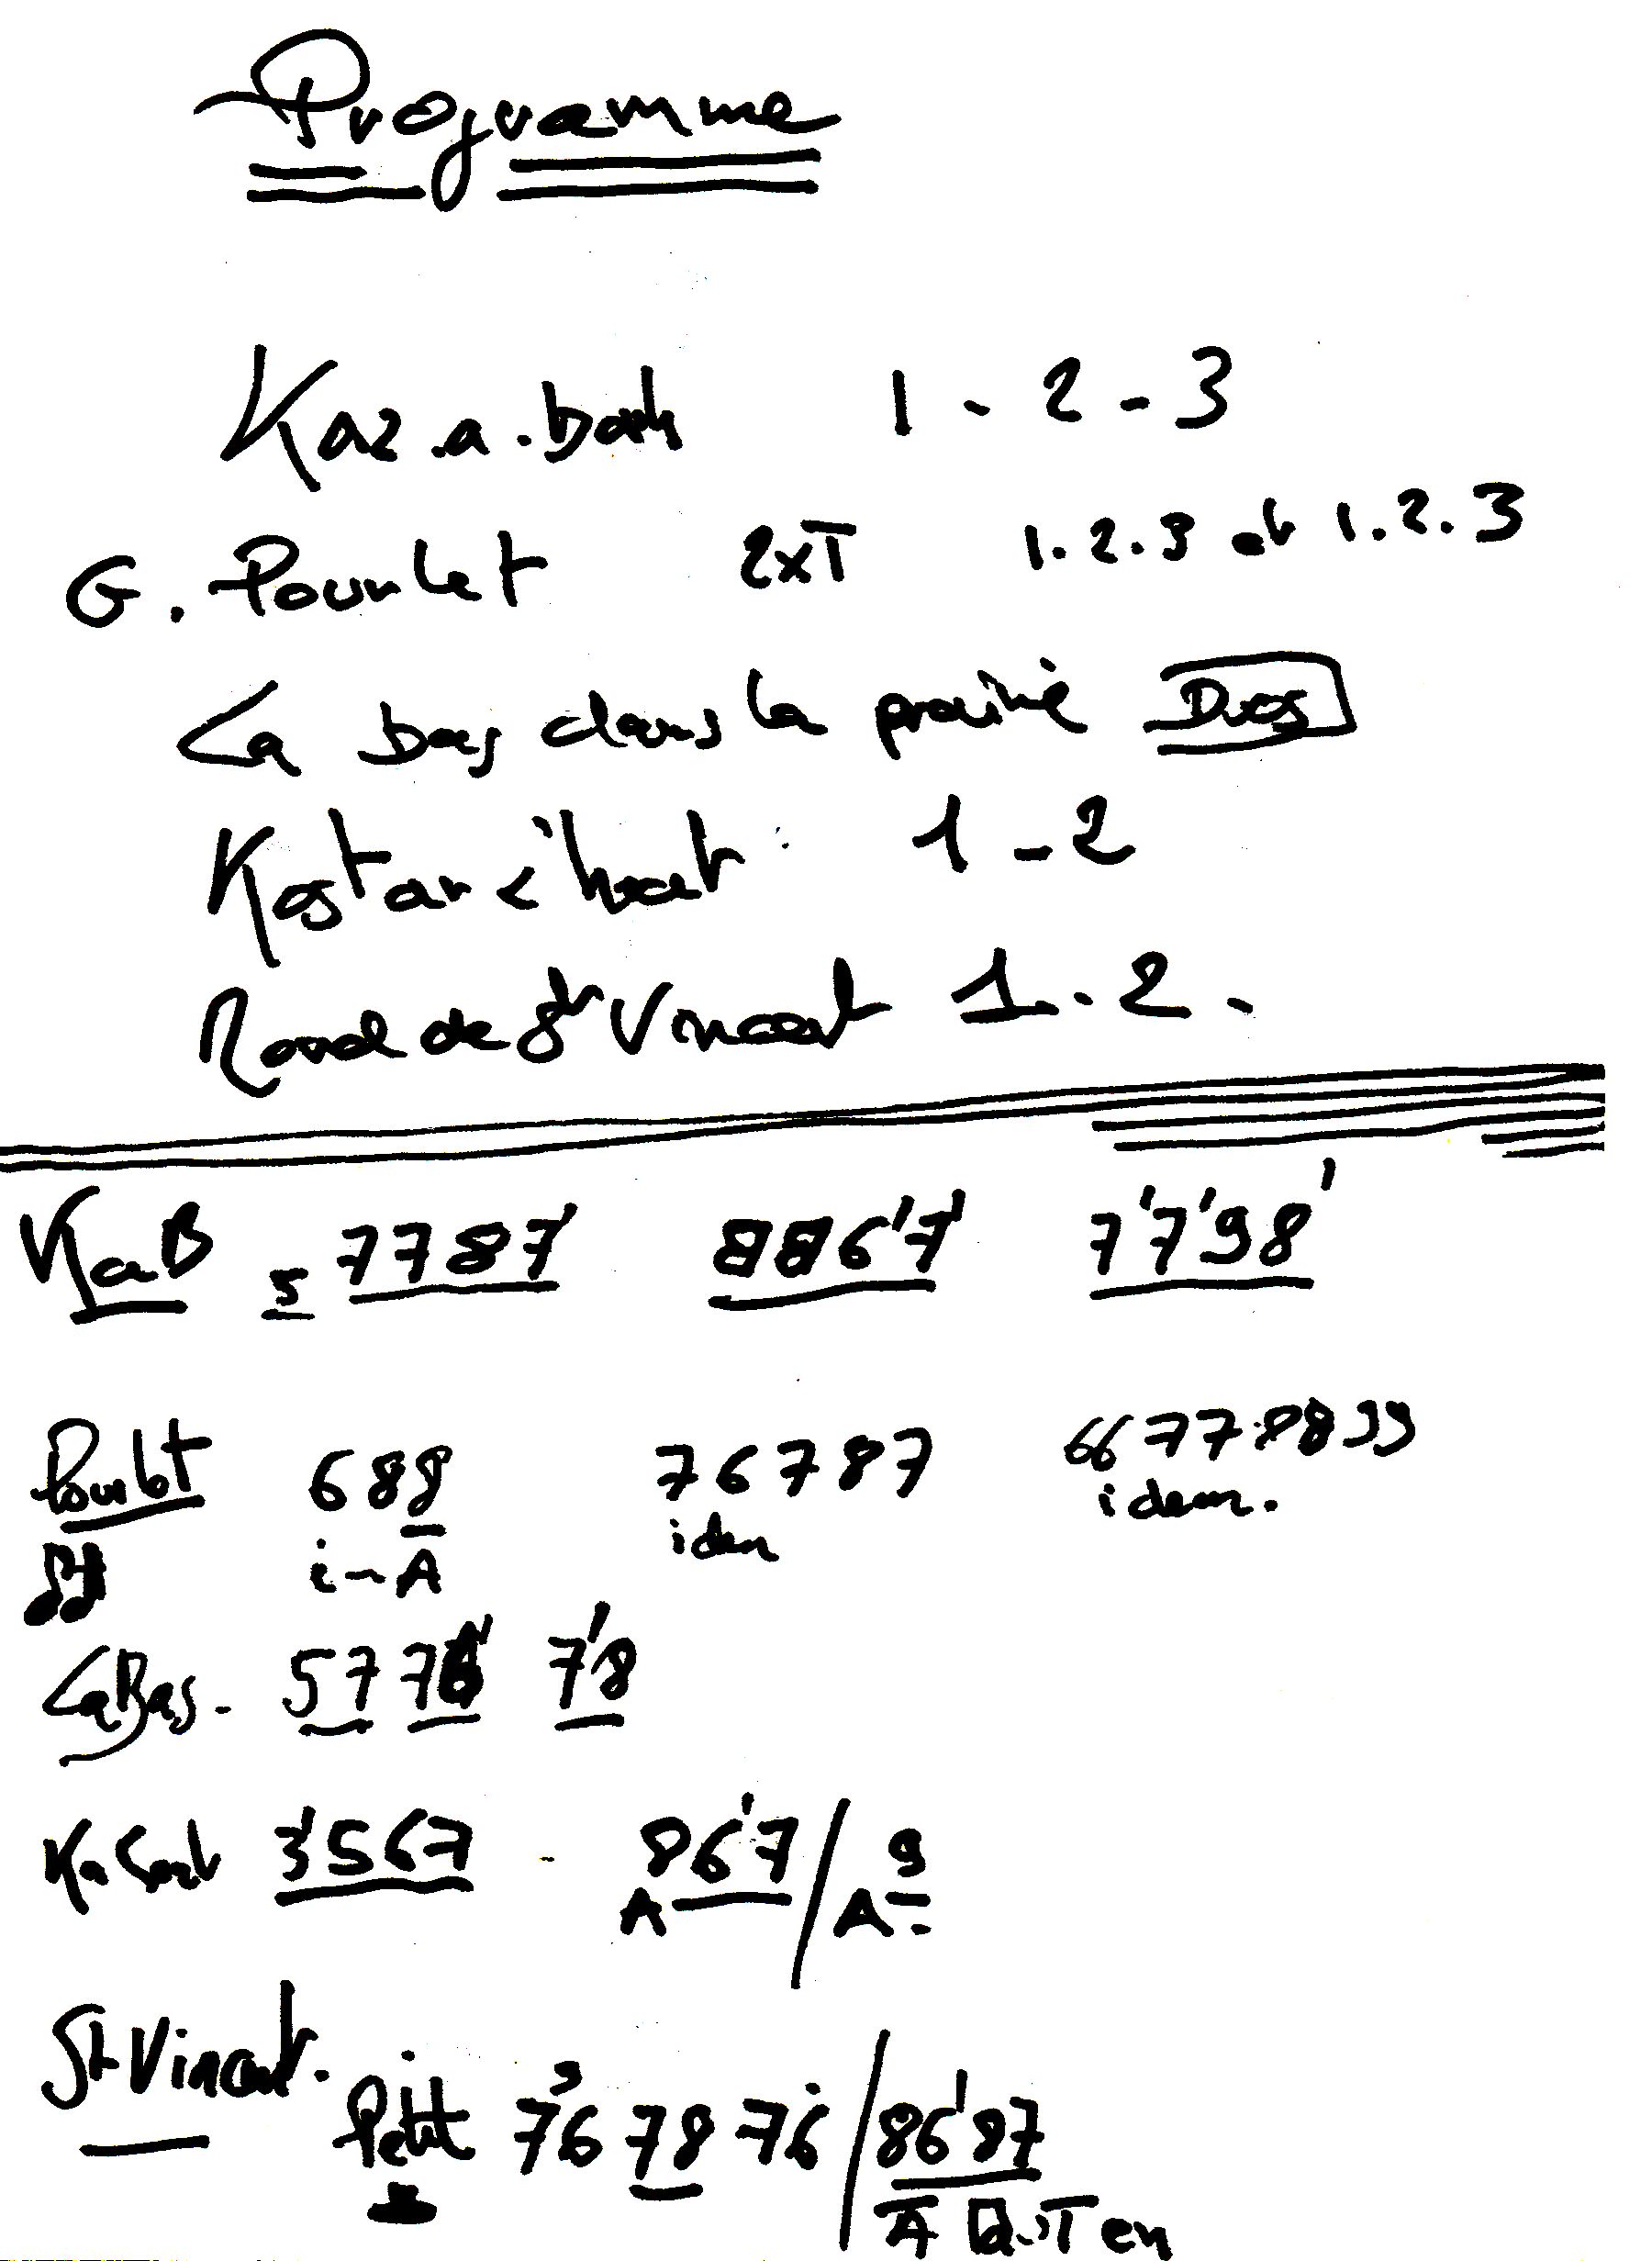 Programme
Kaz.a.barh 1 - 2 - 3
G. Pourlet 2xT 1.2.3 et 1.2.3
La bas dans la prairie Duos
Kost ar c'hoat 1 - 2
Rond de St Vincent 1 - 2 -
KaB 5 7787' 886'7' 7'7'98'
Pourlet 688 76787 66778899
A idem idem.
La Bas - 577 7'8
3'567 - 86'7 / 9
A A
St Vincent.
Petit 76 78 76 / 86'87
A T en